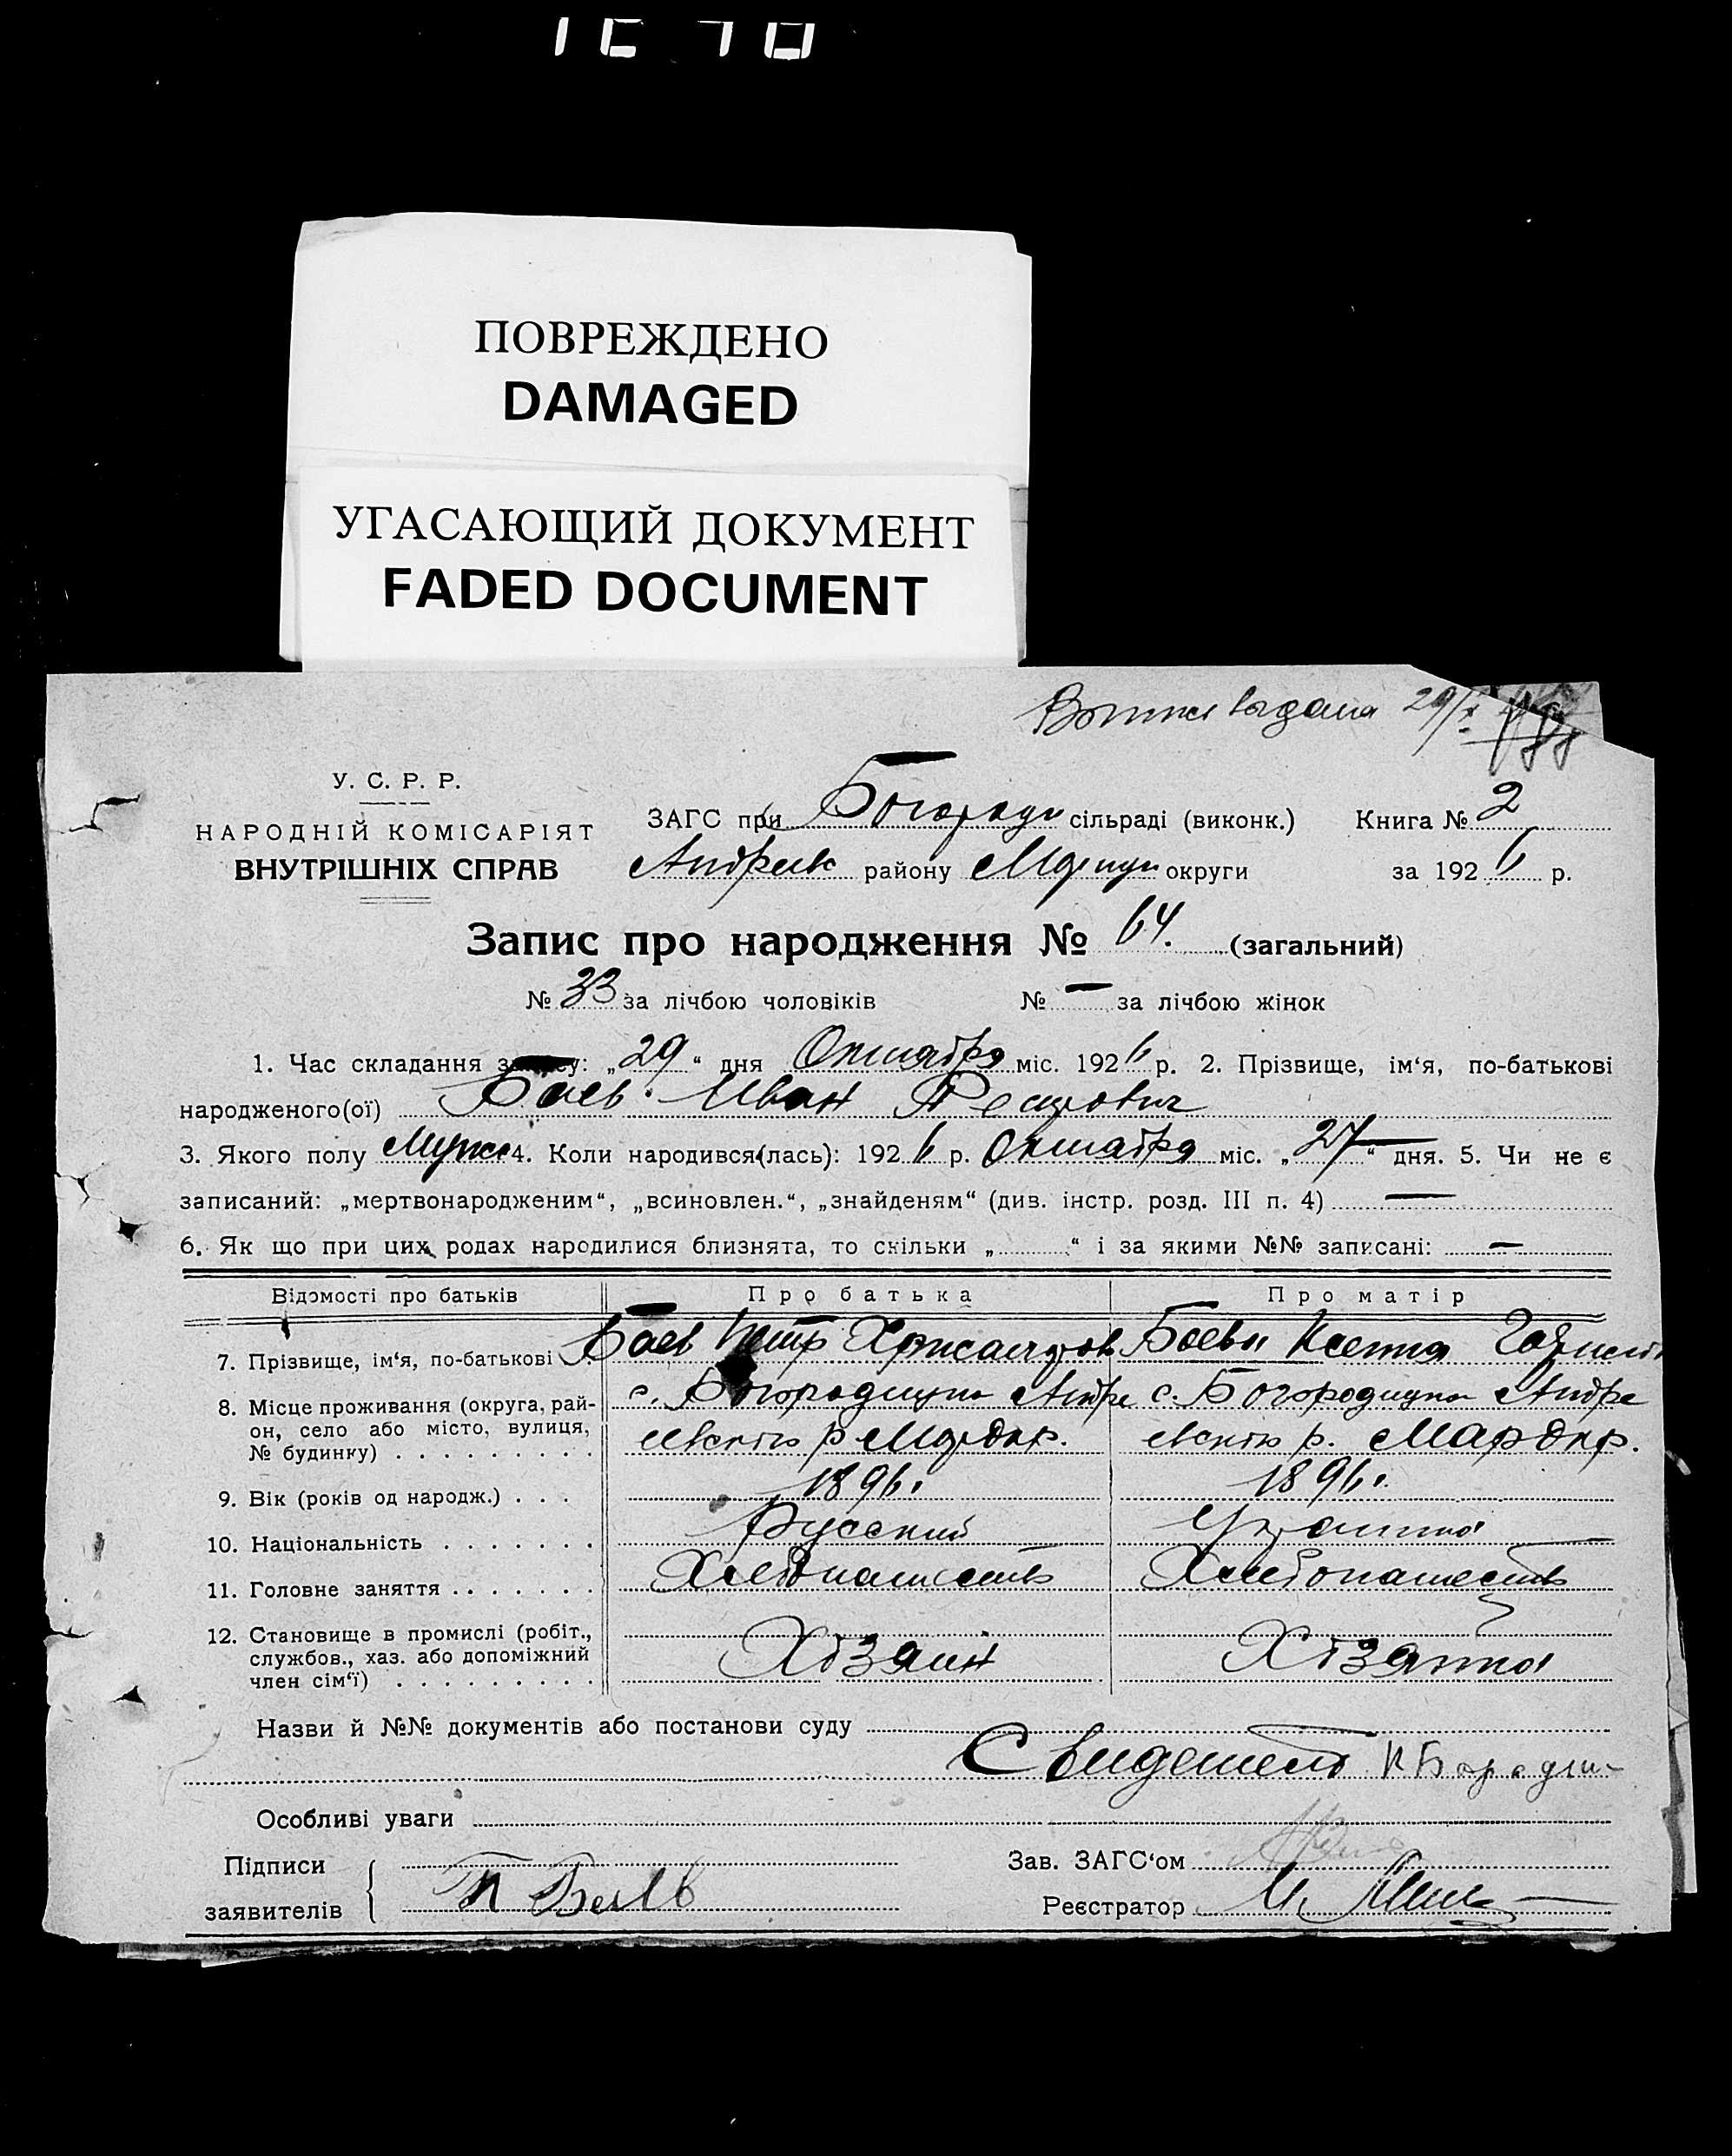 ПОВРЕЖДЕНО
DAMAGED
УГАСАЮЩИЙ ДОКУМЕНТ
FADED DOCUMENT
выдана 29/X
У. С. Р. Р.
НАРОДНІЙ КОМІСАРІЯТ
ВНУТРІШНІХ СПРАВ
ЗАГС при Богороди сільраді (виконк.) Книга № 2
Андреев району Мариуп округи за 1926 р.
Запис про народження № 64. (загальний)
№ 33 за лічбою чоловіків № — за лічбою жінок
1. Час складання запису: „29“ дня Октября міс. 1926 р. 2. Прізвище, ім'я, по-батькові
народженого(ої) Баев Иван Петрович
3. Якого полу Мужс 4. Коли народився(лась): 1926 р. Октября міс. „27“ дня. 5. Чи не є
записаний: „мертвонародженим“, „всиновлен.“, „знайденям“ (див. інстр. розд. III п. 4) —
6. Як що при цих родах народилися близнята, то скільки „ “ і за якими №№ записані: —
Відомості про батьків Про батька Про матір
7. Прізвище, ім'я, по-батькові Баев Петр Баева Ксения
8. Місце проживання (округа, рай- с. Богородицка Андре с. Богородицка Андре
он, село або місто, вулиця, евского р Мар окр. евского р. Мар окр.
№ будинку)
9. Вік (років од народж.) 1896. 1896.
10. Національність Русский Украинка
11. Головне заняття Хлебопашеств Хлебопашеств
12. Становище в промислі (робіт.,
службов., хаз. або допоміжний Хозяин Хозяйка
член сім'ї)
Назви й №№ документів або постанови суду
Свидетель
Особливі уваги
Підписи Зав. ЗАГС'ом
заявителів П Баев Реєстратор